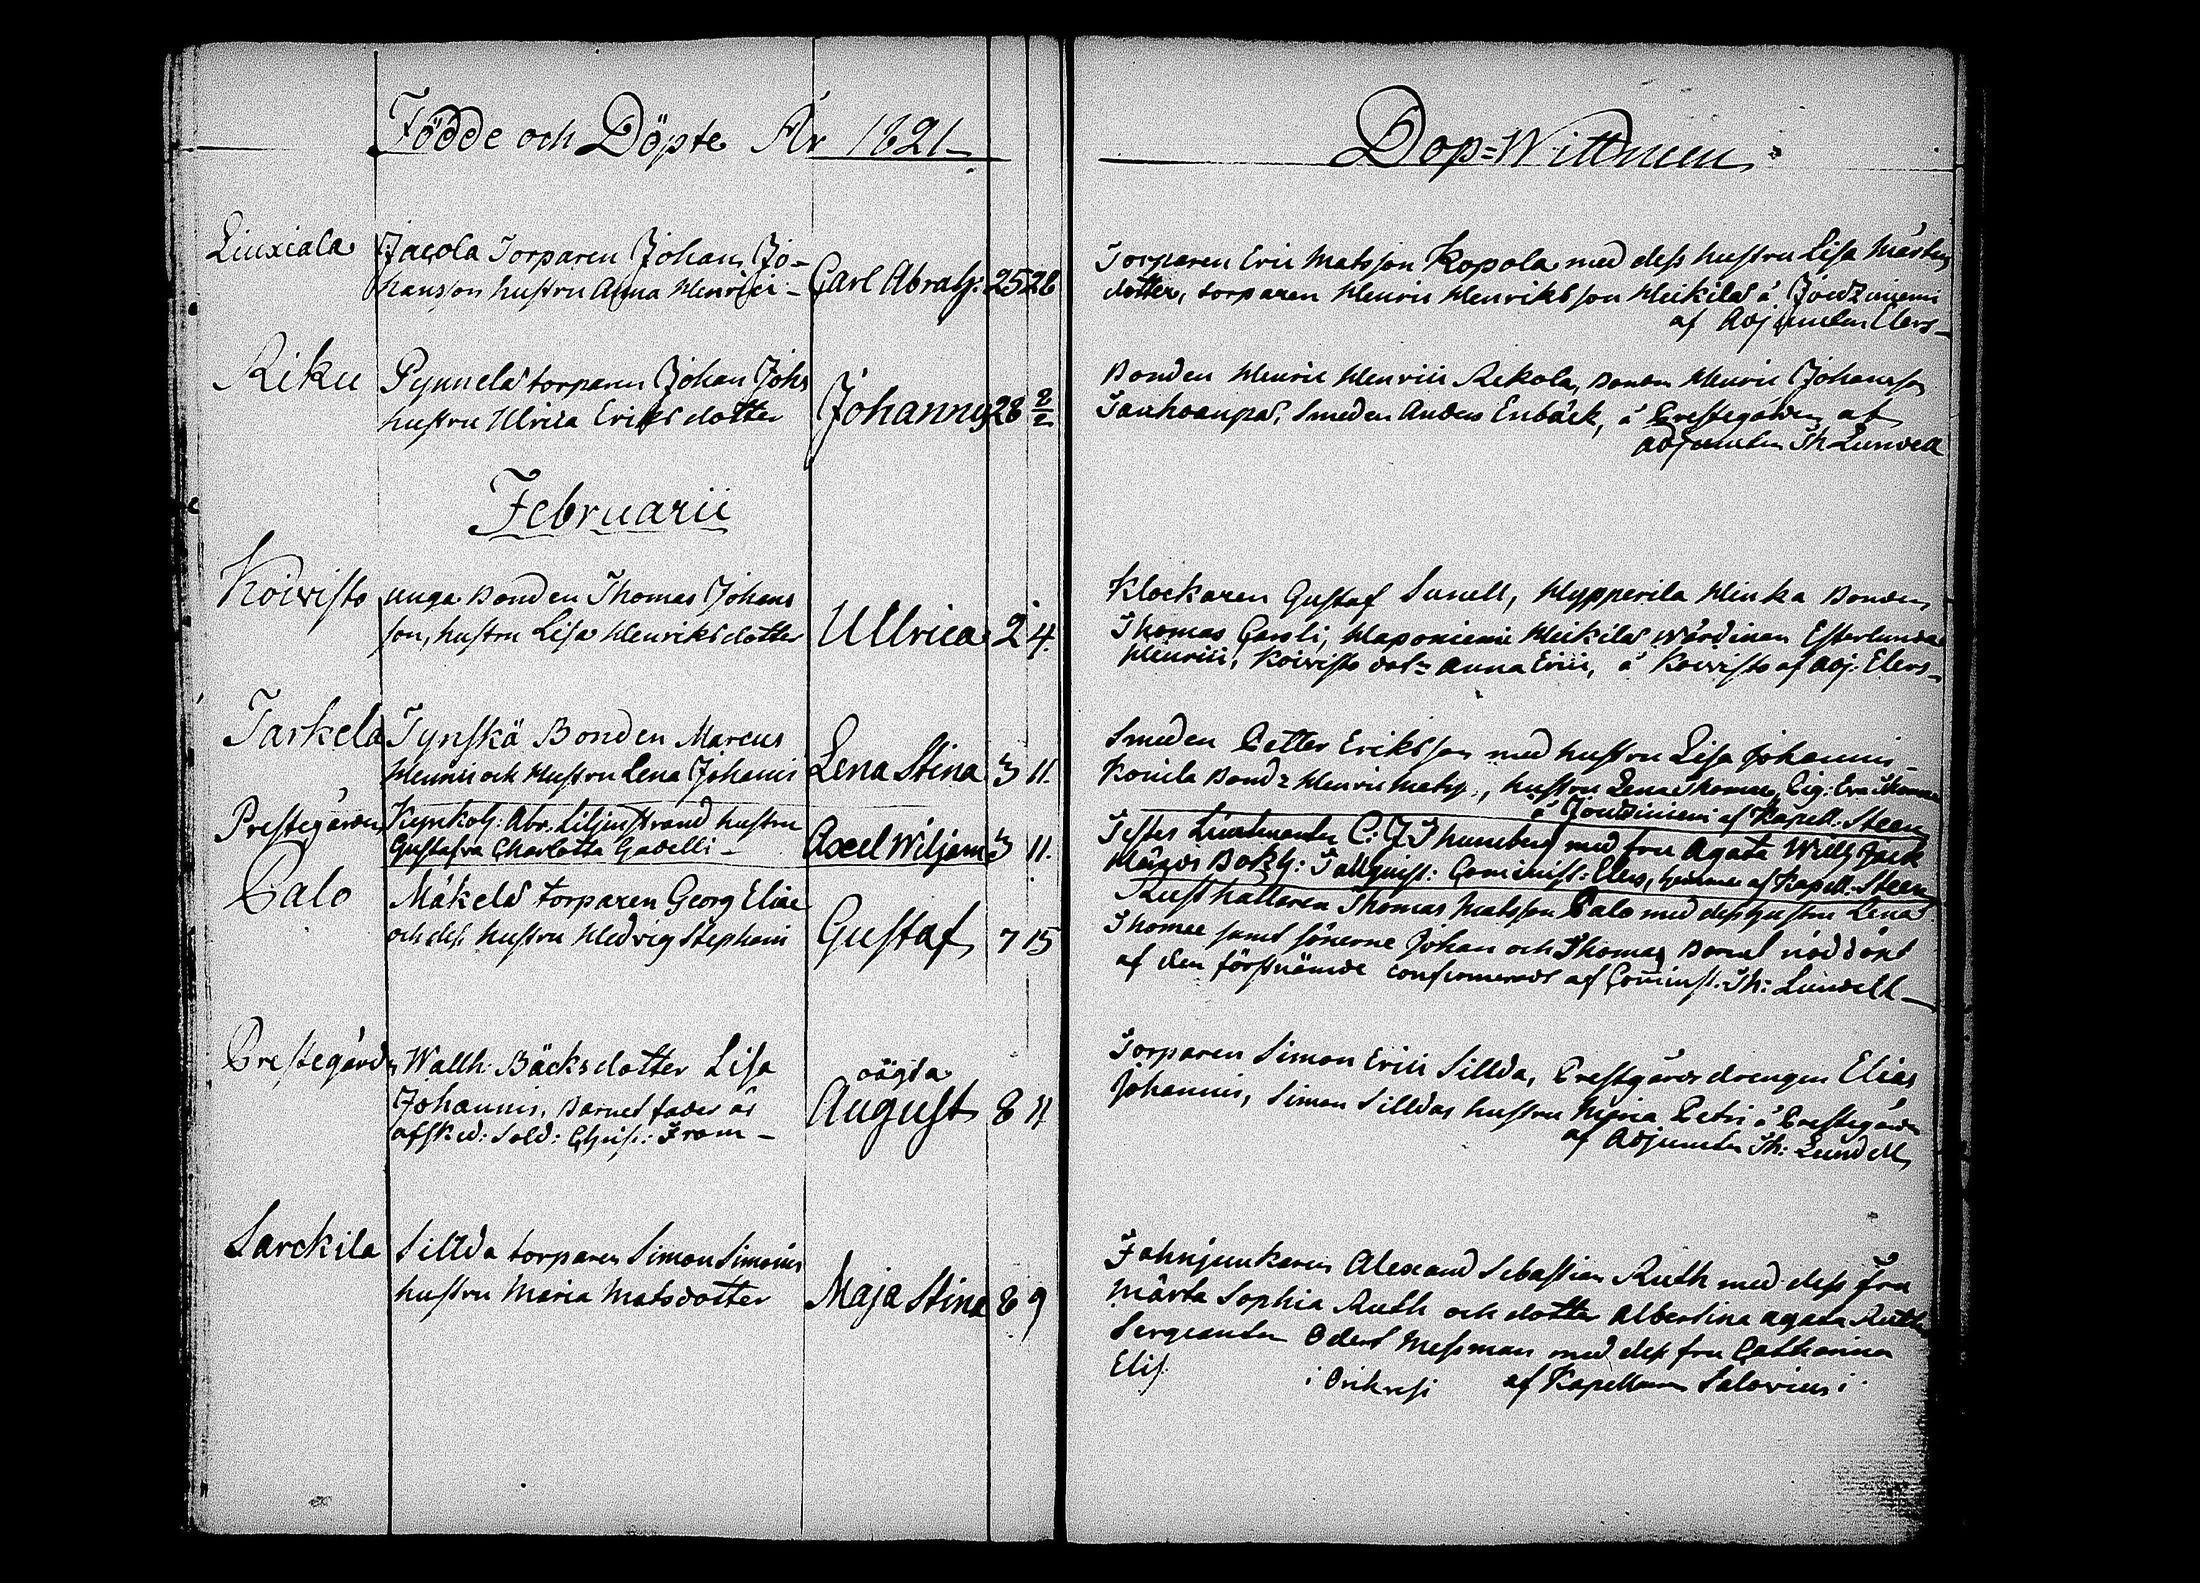 Födde och Döpte År 1821
Liuxiala
Jacola Torparen Johan Jo-
hansson hustru Anna Henrici
Carl Abrah: 25 28
Riku
Pynnelä torparen Johan Johs
hustru Ulrica Eriksdotter
Johannes 28 2/2
Februarii
Koivisto
unga Bonden Thomas Johans
son, hustru Lisa Henriksdotter
Ullrica 2 4.
Tarkela
Tynskä Bonden Marcus
Henrici och Hustru Lena Johannis
Lena Stina 3 11.
Prestegården
Abr. Liljenstrand hustru
Gustafva Charlotta Gadelli
Axel Wiljam 3 11.
Palo
Mäkelä torparen Georg Eliae
och dess hustru Hedvig Stephani
Gustaf 7 15
Prestegårdn
Wallh: Bäcks dotter Lisa
Johannis, Barnets fader är
afsked: Sold: Chris: From
oägta
August 8 11
Sarckila
Sillda torparen Simon Simonis
hustru Maria Matsdotter
Maja Stina 8 9
Dop-Wittnen
Torparen Eric Matsson Kopola med dess hustru Lisa Mårtens
dotter, torparen Henric Henriksson Heikilä å Joudziniemi
af Adjuncten Elers
Bonden Henric Henrici Rekola, Bonden Henric Johansson
Smeden Anders Enbäck, å Prestegården af
adjuncten Th Lundell
Klockaren Gustaf Sunell, Hypperilä Bonden
Thomas Caroli, Haponiemi Heikilä Wärdinan
Henrici, Koivisto dotr Anna Erici, å Koivisto af Adj: Elers
Smeden Petter Eriksson med hustru Lisa Johannis
Konila Bond: Henric Mats: hustru Lena Thomae, Pig: Eva Thomae
å Joudziniemi af Kapell: Steen
Lieutnanten C: J Thuneberg med fru Agata Willh
Bokh: Tallquist: Comminist: Elers, hemma af Kapell: Steen
Rusthållaren Thomas Matsson Palo med dess hustru Lena
Thomae samt sönerne Johan och Thomas Barnet nöddöpt
af den förstnämde confirmerades af Comminist. Th: Lundell
Torparen Simon Erici Sillda, Prestgårds drengen Elias
Johannis, Simon Silldas hustru Maria Petri å Prestegården
af Adjuncten Th: Lundell
Fahnjunkaren Alexand Sebastian Ruth med dess Fru
Märta Sophia Ruth och dotter Albertina Agata Ruth
Sergeanten Odert Messman med dess fru Catharina
Elis: i Orihvesi af Kapellanen Salovius